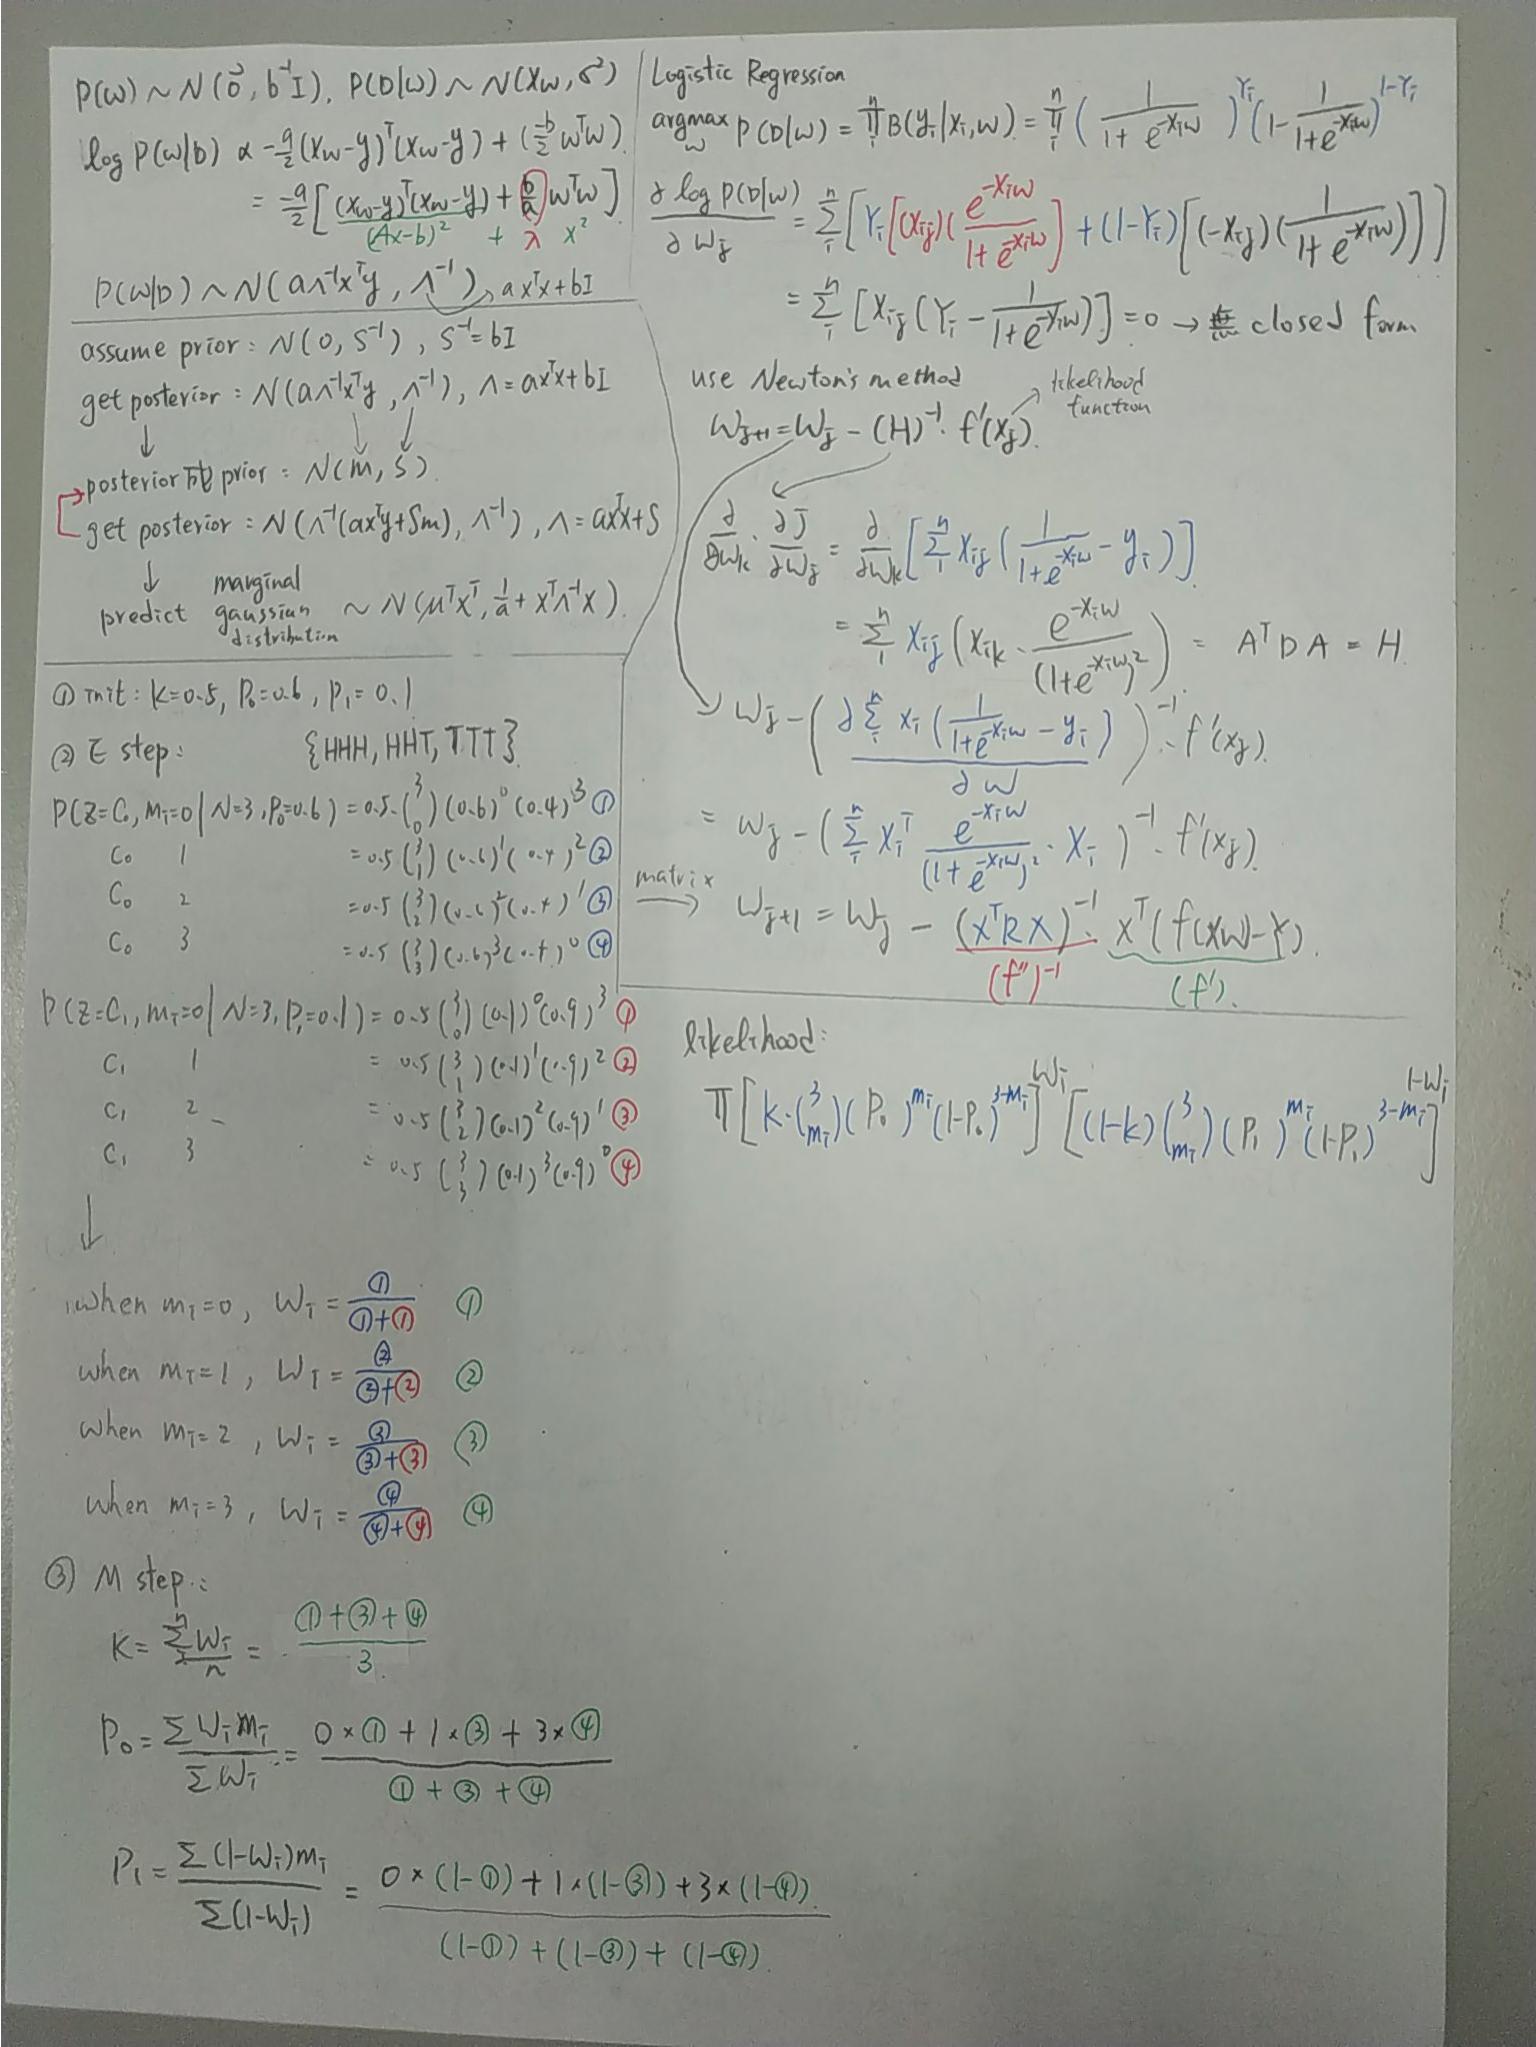 P(w) ~ N(0⃗, b⁻¹I), P(D|w) ~ N(Xw, σ²)
log P(w|D) α -a/2 (Xw-y)ᵀ(Xw-y) + (-b/2 wᵀw)
= -a/2 [(Xw-y)ᵀ(Xw-y) + b/a wᵀw]
(Ax-b)² + λ x²
P(w|D) ~ N(aΛ⁻¹xᵀy, Λ⁻¹) → axᵀx+bI
assume prior: N(0, S⁻¹), S⁻¹=bI
get posterior: N(aΛ⁻¹xᵀy, Λ⁻¹), Λ=axᵀx+bI
↓
posterior成prior: N(m, S)
get posterior: N(Λ⁻¹(axᵀy+Sm), Λ⁻¹), Λ=axᵀx+S
↓
predict marginal gaussian distribution ~ N(μᵀxᵀ, 1/a + xᵀΛ⁻¹x)
① init: K=0.5, P₀=0.6, P₁=0.1
② E step: {HHH, HHT, TTT}
P(Z=C₀, mᵢ=0 | N=3, P₀=0.6) = 0.5·(3 0)(0.6)⁰(0.4)³ ①
C₀ 1 =0.5 (3 1)(0.6)¹(0.4)² ②
C₀ 2 =0.5 (3 2)(0.6)²(0.4)¹ ③
C₀ 3 =0.5 (3 3)(0.6)³(0.4)⁰ ④
P(Z=C₁, mᵢ=0 | N=3, P₁=0.1) = 0.5 (3 0)(0.1)⁰(0.9)³ ①
C₁ 1 = 0.5 (3 1)(0.1)¹(0.9)² ②
C₁ 2 = 0.5 (3 2)(0.1)²(0.9)¹ ③
C₁ 3 = 0.5 (3 3)(0.1)³(0.9)⁰ ④
↓
when mᵢ=0, Wᵢ = ①/(①+①) ①
when mᵢ=1, Wᵢ = ②/(②+②) ②
when mᵢ=2, Wᵢ = ③/(③+③) ③
when mᵢ=3, Wᵢ = ④/(④+④) ④
③ M step:
K = Σⁿ Wᵢ/n = (①+③+④)/3
P₀ = ΣWᵢmᵢ/ΣWᵢ = (0×① + 1×③ + 3×④)/(① + ③ + ④)
P₁ = Σ(1-Wᵢ)mᵢ/Σ(1-Wᵢ) = (0×(1-①) + 1×(1-③) + 3×(1-④))/((1-①) + (1-③) + (1-④))
Logistic Regression
argmax w P(D|w) = ∏ᵢⁿ B(yᵢ|xᵢ,w) = ∏ᵢⁿ (1/(1+e^(-Xᵢw)))^Yᵢ (1-1/(1+e^(-Xᵢw)))^(1-Yᵢ)
∂ log P(D|w)/∂wⱼ = Σᵢⁿ [Yᵢ[(Xᵢⱼ)(e^(-Xᵢw)/(1+e^(-Xᵢw)))] + (1-Yᵢ)[(-Xᵢⱼ)(1/(1+e^(-Xᵢw)))]]
= Σᵢⁿ [Xᵢⱼ(Yᵢ - 1/(1+e^(-Xᵢw)))] = 0 → 無 closed form
use Newton's method
Wⱼ₊₁ = Wⱼ - (H)⁻¹·f'(xⱼ). → likelihood function
∂/∂wₖ · ∂J/∂wⱼ = ∂/∂wₖ [Σᵢⁿ Xᵢⱼ(1/(1+e^(-Xᵢw)) - yᵢ)]
= Σᵢⁿ Xᵢⱼ(Xᵢₖ · e^(-Xᵢw)/(1+e^(-Xᵢw))²) = AᵀDA = H
Wⱼ - (∂Σᵢⁿ Xᵢ(1/(1+e^(-Xᵢw)) - yᵢ)/∂w)⁻¹ · f'(xⱼ).
= Wⱼ - (Σᵢⁿ Xᵢᵀ e^(-Xᵢw)/(1+e^(-Xᵢw))² · Xᵢ)⁻¹ · f'(xⱼ).
matrix → Wⱼ₊₁ = Wⱼ - (XᵀRX)⁻¹ · Xᵀ(f(Xw)-Y).
(f'')⁻¹ (f').
likelihood:
∏[K·(3 mᵢ)(P₀)^mᵢ(1-P₀)^(3-mᵢ)]^Wᵢ [(1-K)(3 mᵢ)(P₁)^mᵢ(1-P₁)^(3-mᵢ)]^(1-Wᵢ)